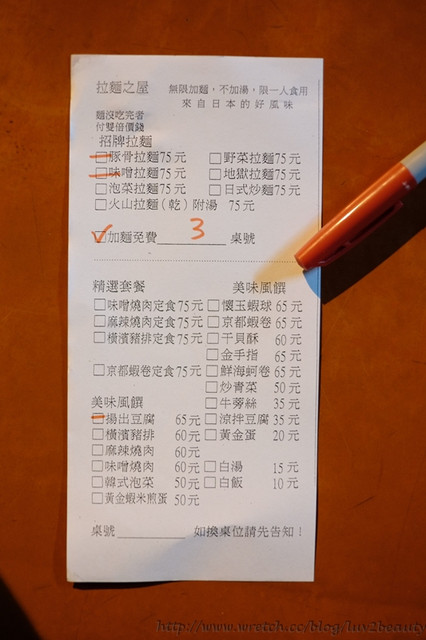 拉麵之屋 無限加麵，不加湯，限一人食用
來自日本的好風味
麵沒吃完者
付雙倍價錢
招牌拉麵
豚骨拉麵75元 野菜拉麵75元
味噌拉麵75元 地獄拉麵75元
泡菜拉麵75元 日式炒麵75元
火山拉麵(乾)附湯 75元
加麵免費 3 桌號
精選套餐 美味風饌
味噌燒肉定食75元 懷玉蝦球 65元
麻辣燒肉定食75元 京都蝦卷 65元
橫濱豬排定食75元 干貝酥 60元
金手指 65元
京都蝦卷定食75元 鮮海蚵卷 65元
炒青菜 50元
美味風饌 牛蒡絲 35元
揚出豆腐 65元 涼拌豆腐 35元
橫濱豬排 60元 黃金蛋 20元
麻辣燒肉 60元
味噌燒肉 60元 白湯 15元
韓式泡菜 50元 白飯 10元
黃金蝦米煎蛋 50元
桌號 如換桌位請先告知！
http://www.wretch.cc/blog/luv2beauty